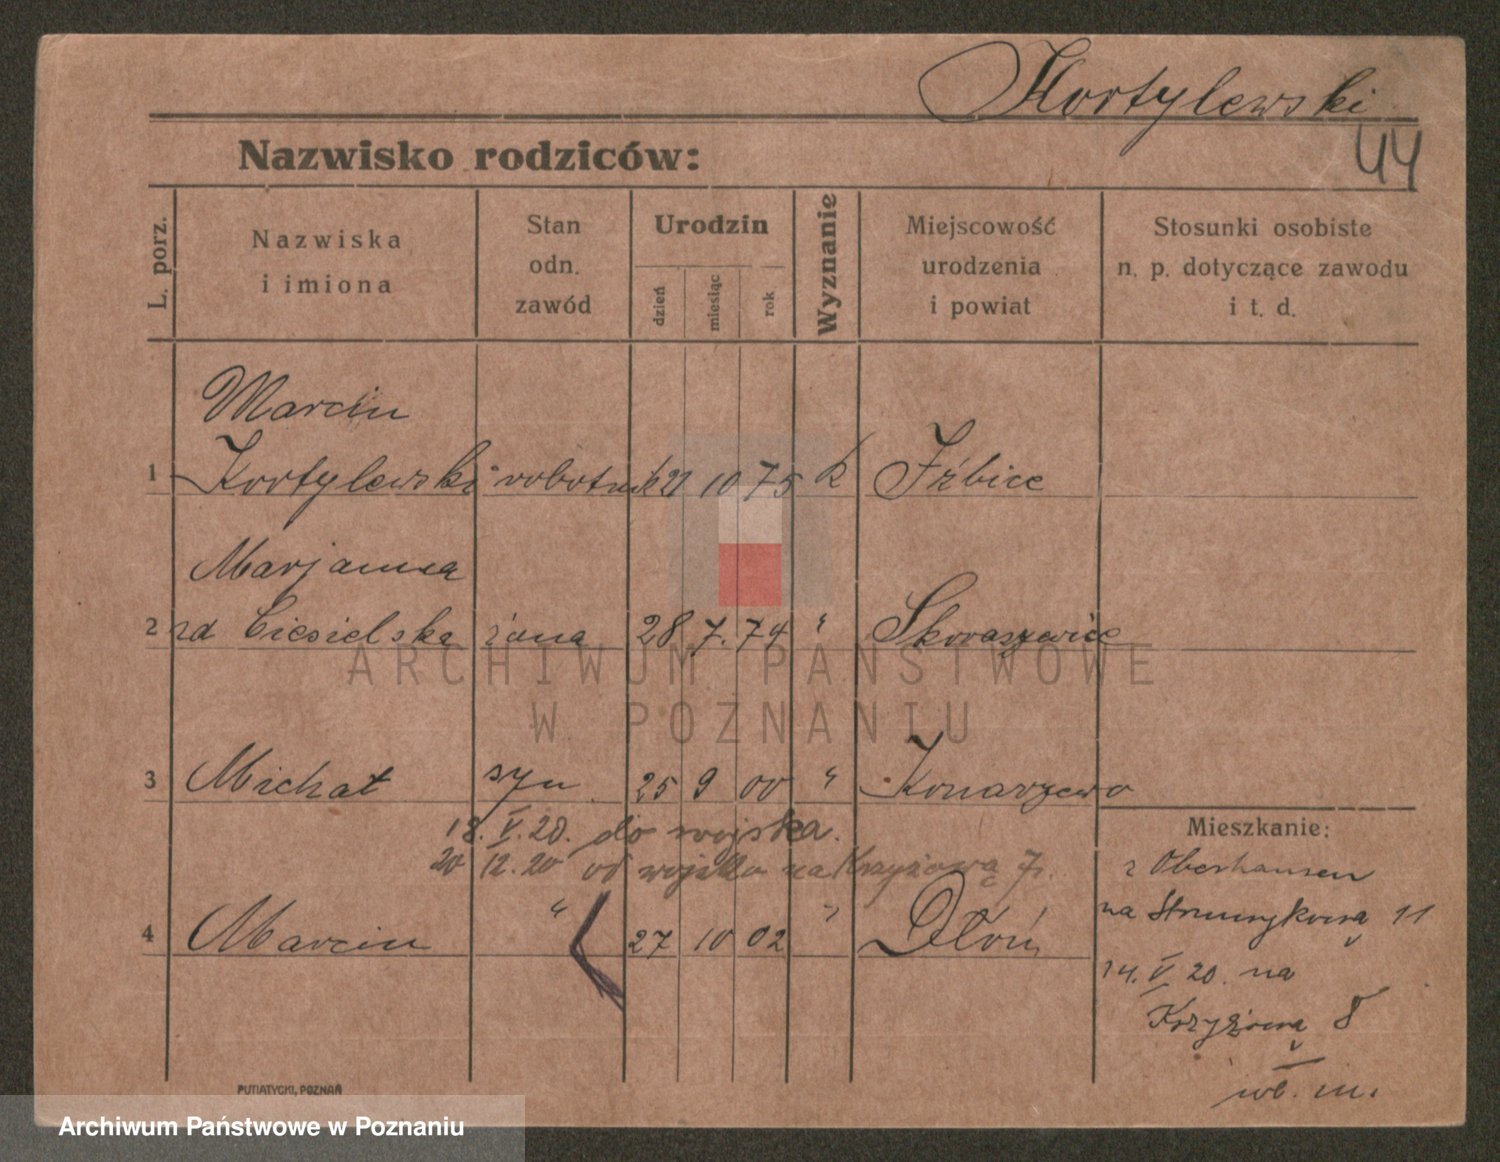 Kortylewski
44
Nazwisko rodziców:
L. porz.
Nazwiska
i imiona
Stan
odn.
zawód
Urodzin
dzień
miesiąc
rok
Wyznanie
Miejscowość
urodzenia
i powiat
Stosunki osobiste
n. p. dotyczące zawodu
i t. d.
Marcin
1 Kortylewski robotnik 10 75 k
Marjanna
2 zd Ciesielska żona 28 7. 74 " Skoraszewice
3 Michał syn 25 9 00 " Konarzewo
18. V. 20. do wojska.
20 12. 20 od wojska na Krzyżową 7.
4 Marcin " 27 10 02 " Dłoń
Mieszkanie:
z Oberhausen
na Strumykową 11
14. V. 20. na
Krzyżową 8
PUTIATYCKI, POZNAŃ
ARCHIWUM PAŃSTWOWE
W POZNANIU
Archiwum Państwowe w Poznaniu